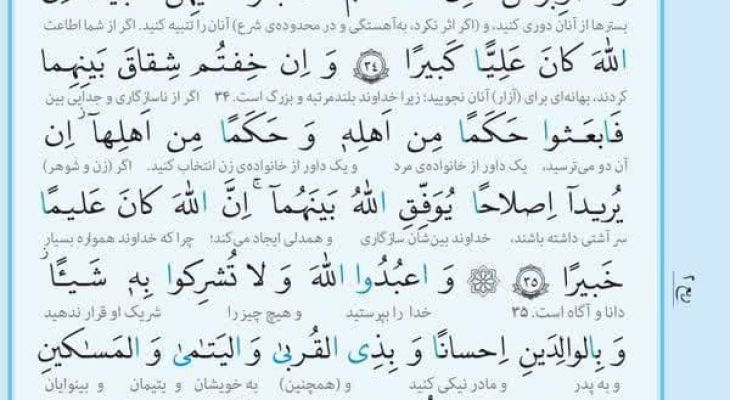 بسترها از آنان دوری کنید، و (اگر اثر نکرد، به‌آهستگی و در محدوده‌ی شرع) آنان را تنبیه کنید. اگر از شما اطاعت
اللهَ کانَ عَلِیًّا کَبیرًا ﴿٣٤﴾ وَ اِن خِفتُم شِقاقَ بَینِهِما
کردند، بهانه‌ای برای (آزار) آنان نجویید؛ زیرا خداوند بلندمرتبه و بزرگ است. ۳۴ اگر از ناسازگاری و جدایی بین
فَابعَثوا حَکَمًا مِن اَهلِهٖ وَ حَکَمًا مِن اَهلِهآ ۚ اِن
آن دو می‌ترسید، یک داور از خانواده‌ی مرد و یک داور از خانواده‌ی زن انتخاب کنید. اگر (زن و شوهر)
یُریدآ اِصلاحًا یُوَفِّقِ اللهُ بَینَهُمآ ۗ اِنَّ اللهَ کانَ عَلیمًا
سر آشتی داشته باشند، خداوند بین‌شان سازگاری و همدلی ایجاد می‌کند؛ چرا که خداوند همواره بسیار
خَبیرًا ﴿٣٥﴾ وَ اعبُدُوا اللهَ وَ لا تُشرِکوا بِهٖ شَیـًٔا
دانا و آگاه است. ۳۵ خدا را بپرستید و هیچ چیز را شریک او قرار ندهید
وَ بِالوالِدَینِ اِحسانًا وَ بِذِی القُربیٰ وَ الیَتٰمیٰ وَ المَسٰکینِ
و به پدر و مادر نیکی کنید و (همچنین) به خویشان و یتیمان و بینوایان